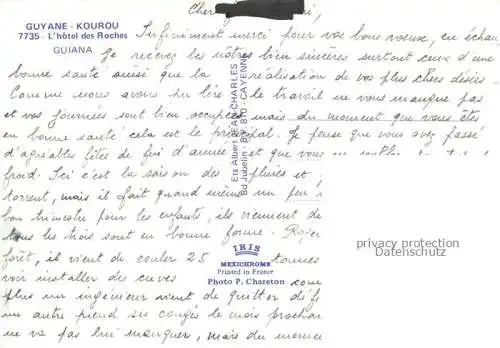 GUYANE - KOUROU
7735 - L'hôtel des Roches
GUIANA
Infiniment merci pour vos bons voeux, en échan
Je recevez les nôtres bien sincères surtout ceux d'une
bonne santé ainsi que la réalisation de vos plus chers désirs.
Comme nous avons pu lire le travail ne vous manque pas
et vos journées sont bien occupées mais du moment que vous êtes
en bonne santé cela est le principal. Je pense que vous avez passé
d'agréables fêtes de fin d'année et que vous
froid. Ici c'est la saison des pluies et
torrent, mais il fait quand même un peu
bon trimestre pour les enfants, ils viennent de
tous les trois sont en bonne forme. Roger
forêt, il vient de couler 25 tonnes
voir installer des cuves
plus un ingénieur vient de quitter
un autre prend ses congés le mois prochai
ne va pas lui manquer, mais du momen
Ets Albert BEAUCHARLES
Bd Jubelin - BP - CAYENNE
IRIS
MEXICHROME
Printed in France
Photo P. Chareton
privacy protection
Datenschutz